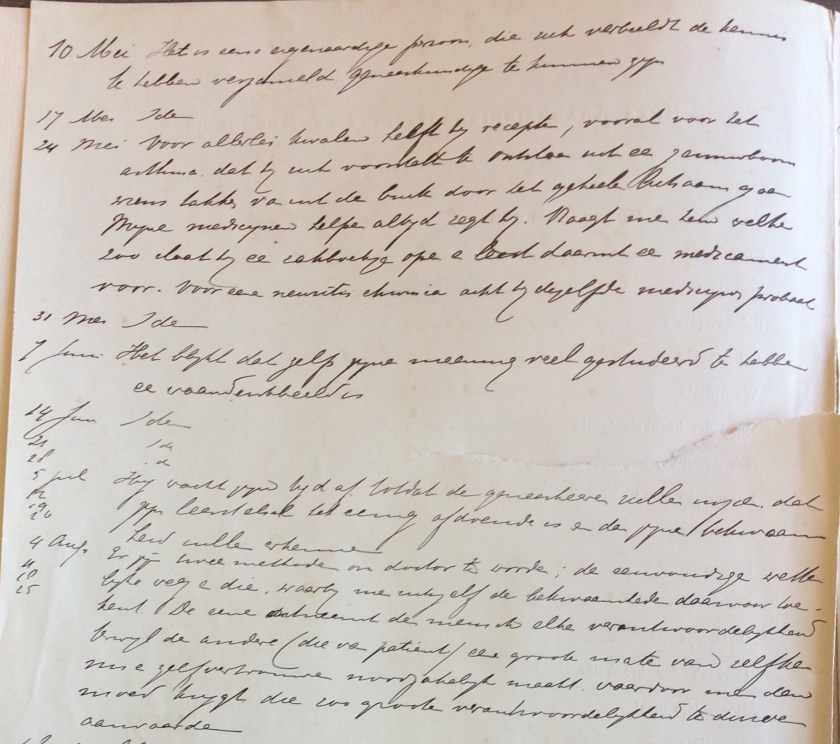 10 Mei Het is een eigenaardige persoon, die zich verbeeldt de kennis
te hebben verzameld geneeskundige te kunnen zijn
17 Mei Idem
24 Mei Voor allerlei kwalen heeft hij recepten, vooral voor het
asthma dat hij zich voorstelt te ontstaan uit een zenuwboom
wiens takken vanuit de buik door het geheele lichaam gaan
Mijne medicijnen helpen altijd zegt hij. Vraagt men hem welke
zoo slaat hij een zakboekje open en leest daaruit een medicament
voor. Voor eene neuritis chronica acht hij dezelfde medicijnen probaat
31 Mei Idem
7 Juni Het blijkt dat zelfs zijne meening veel gestudeerd te hebben
een waandenkbeeld is
14 Juni Idem
21 Idem
28 idem
5 Juli Hij wacht zijn tijd af totdat de geneesheeren zullen inzien dat
12
19 zijn leerstelsel het eenig afdoende is en de zijne bekwaam
26
heid zullen erkennen
4 Aug Er zijn twee methoden om doctor te worden; de eenvoudige wette
11
18 lijke weg en die, waarbij men zichzelf de bekwaamheden daarvoor toe-
25
kent. De eene ontneemt den mensch elke verantwoordelijkheid
terwijl de andere (die van patient) een groote mate van zelfken
nis en zelfvertrouwen noodzakelijk maakt waardoor men den
moed krijgt die zoo groote verantwoordelijkheid te durven
aanvaarden